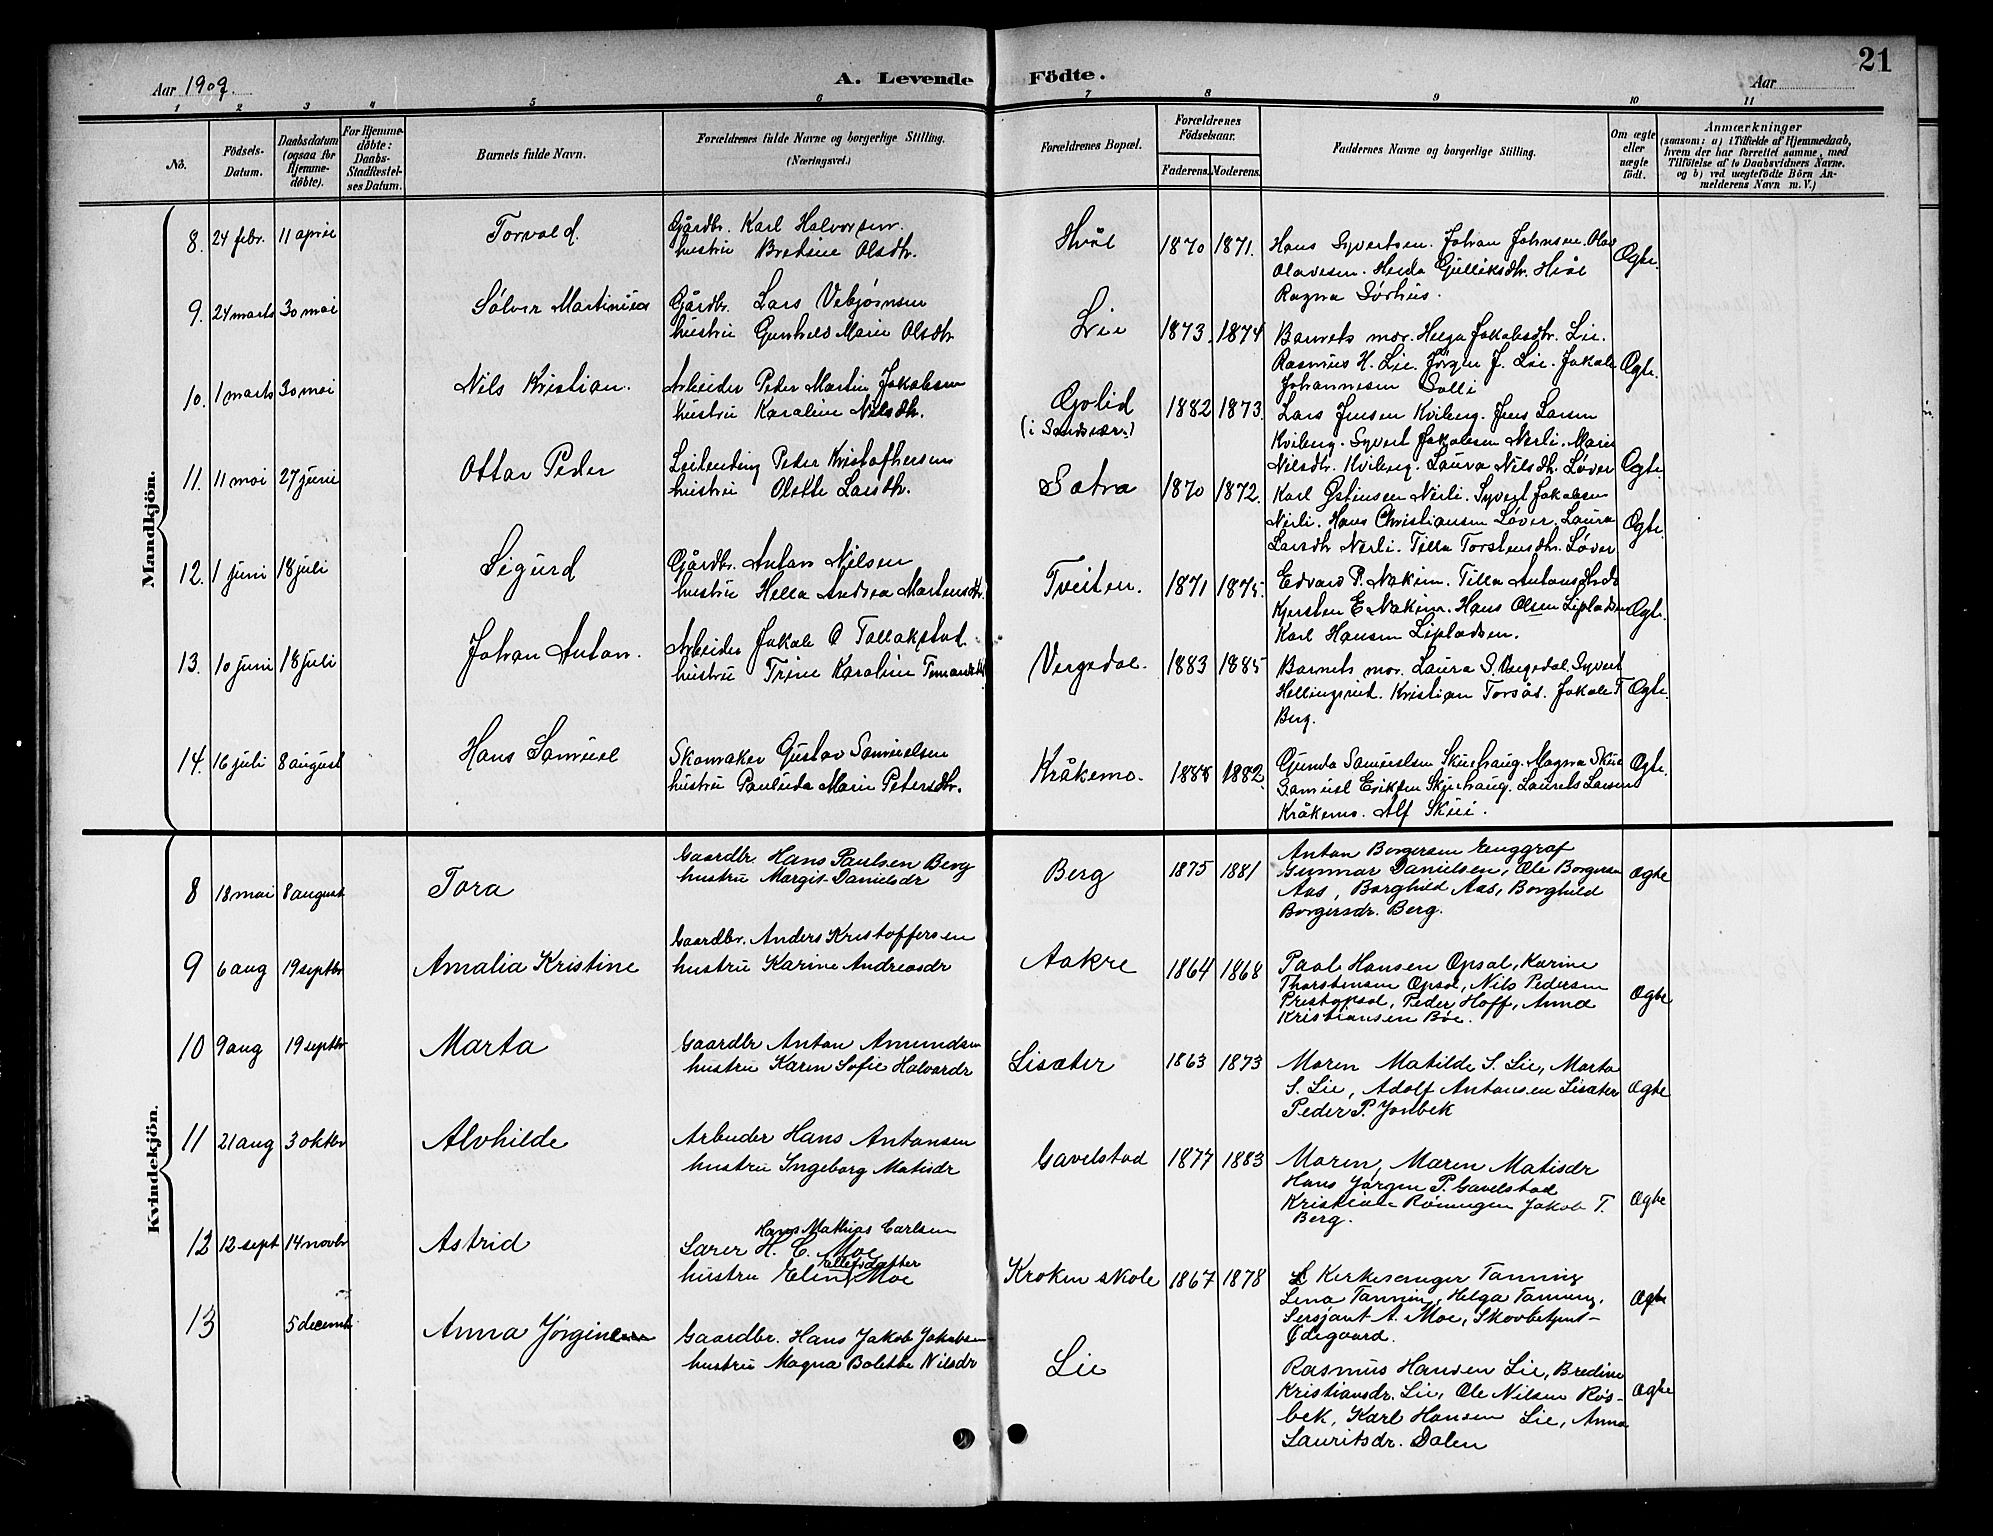 Aar 1909.
A. Levende Födte.
Aar
21
1 2 3 4 5 6 7 8 9 10 11
No.
Födsels-Datum.
Daabsdatum (ogsaa for Hjemme-döbte).
For Hjemme-döbte: Daabs-Stadfæstel-ses Datum.
Barnets fulde Navn.
Forældrenes fulde Navne og borgerlige Stilling. (Næringsvei.)
Forældrenes Bopæl.
Forældrenes Födselsaar.
Faderens. Moderens.
Faddernes Navne og borgerlige Stilling.
Om ægte eller uægte födt.
Anmærkninger
(saasom: a) i Tilfælde af Hjemmedaab,
hvem der har forrettet samme, med
Tilföielse af to Daabsvidners Navne.
og b) ved uægtefödte Börn An-
melderens Navn m. V.)
Mandkjön.
8. 24 febr. 11 april Torvald. Gårdbr. Karl Halvorsen.
hustru Bredine Olsdtr.
Hvål 1870 1871. Hans Syvertsen. Johan Johnsen. Olav
Olavesen. Helda Gulliksdtr. Hvål
Ragna Sørhus.
Ægte.
9. 24 marts 30 mai Sølver Martinius Gårdbr. Lars Vebjørnsen
hustru Gunhild Marie Olsdtr.
Lie 1873. 1874 Barnets mor. Helga Jakobsdtr. Lie.
Rasmus H. Lie. Jørgen J. Lie. Jakob
Johannesen Solli
Ægte.
10. 1 marts 30 mai Nils Kristian. Arbeider Peder Martin Jakobsen
hustru Karoline Nilsdtr.
Golid
(i Sandsvær.)
1882 1873. Lars Jensen Kviberg. Jens Larsen
Kviberg. Syvert Jakobsen Nerli. Marie
Nilsdtr. Kviberg. Laura Nilsdtr. Løver
Ægte.
11. 11 mai 27 juni Ottar Peder Leilending Peder Kristofhersen
hustru Olette Larsdtr.
Satra 1870 1872. Karl Østensen Nerli. Syvert Jakobsen
Nerli. Hans Christiansen Løver. Laura
Larsdtr Nerli. Tilla Torstensdtr. Løver
Ægte.
12. 1 juni 18 juli Sigurd Gårdbr. Anton Nilsen
hustru Hella Andrea Martensdtr.
Tveiten. 1871 1875. Edvard P. Nakim. Tilla Antonsdtr.
Kjersten E Nakim. Hans Olsen Lipladsen
Karl Hansen Lipladsen.
Ægte.
13. 10 juni 18 juli Johan Anton. Arbeider Jakob O Tollakstad.
hustru Trine Karoline
Vergedal. 1883 1885 Barnets mor. Laura S. Vergedal. Syvert
Hellingsrud. Kristian Torsås. Jakob T
Berg.
Ægte.
14. 16 juli 8 august Hans Samuel Skomaker Gustav Samuelsen
hustru Paulida Marie Petersdtr.
Kråkemo. 1882. Gunda Samuelsen Skuehaug. Magna Skue
Samuel Eriksen Skuehaug. Laurits Larsen
Kråkemo. Alf Skui.
Ægte.
Kvindekjön.
8 18 mai 8 august Tora Gaardbr. Hans Paulsen Berg
hustru Margit Danielsdr
Berg 1875 1881 Anton Borgersen Enggraf
Gunnar Danielsen, Ole Borgersen
Aas, Borghild Aas, Borghild
Borgersdr. Berg.
Ægte
9 6 aug 19 septbr Amalia Kristine Gaardbr. Anders Kristoffersen
hustru Karine Andreasdr
Aakre 1864 1868 Paal Hansen Opsal, Karine
Thorstensen Opsal, Nils Pedersen
Prestopsal, Peder Hoff, Anna
Kristiansen Böe.
Ægte
10 9 aug 19 septbr Marta Gaardbr Anton Amundsen
hustru Karen Sofie Halvordr
Lisæter 1863 1873 Moren Matilde S. Lie, Marta
S. Lie, Adolf Antonsen Lisæter
Peder P. Jonbek
Ægte
11 21 aug 3 oktbr Alvhilde Arbeider Hans Antonsen
hustru Ingeborg Matisdr
Gavelstad 1877 1883 Moren, Maren Matisdr
Hans Jørgen P. Gavelstad
Kristian Röningen Jakob T.
Berg.
Ægte
12 12 sept 14 novbr Astrid Hans Mathias Carlsen
Lærer H. C. Moe
Ellefsdatter
hustru Elin Moe
Kroken skole 1867 1878 Kirkesanger Tanning
Lena Tanning, Helga Tanning.
Sersjant A. Moe, Skovbetjent
Ødegaard.
Ægte
13 5 decemb Anna Jørgine Gaardbr. Hans Jakob Jakobsen
hustru Magna Bolette Nilsdr
Lie Rasmus Hansen Lie, Bredine
Kristiansdr. Lie, Ole Nilsen Røs-
bek, Karl Hansen Lie, Anna
Lauritsdr. Dalen
Ægte